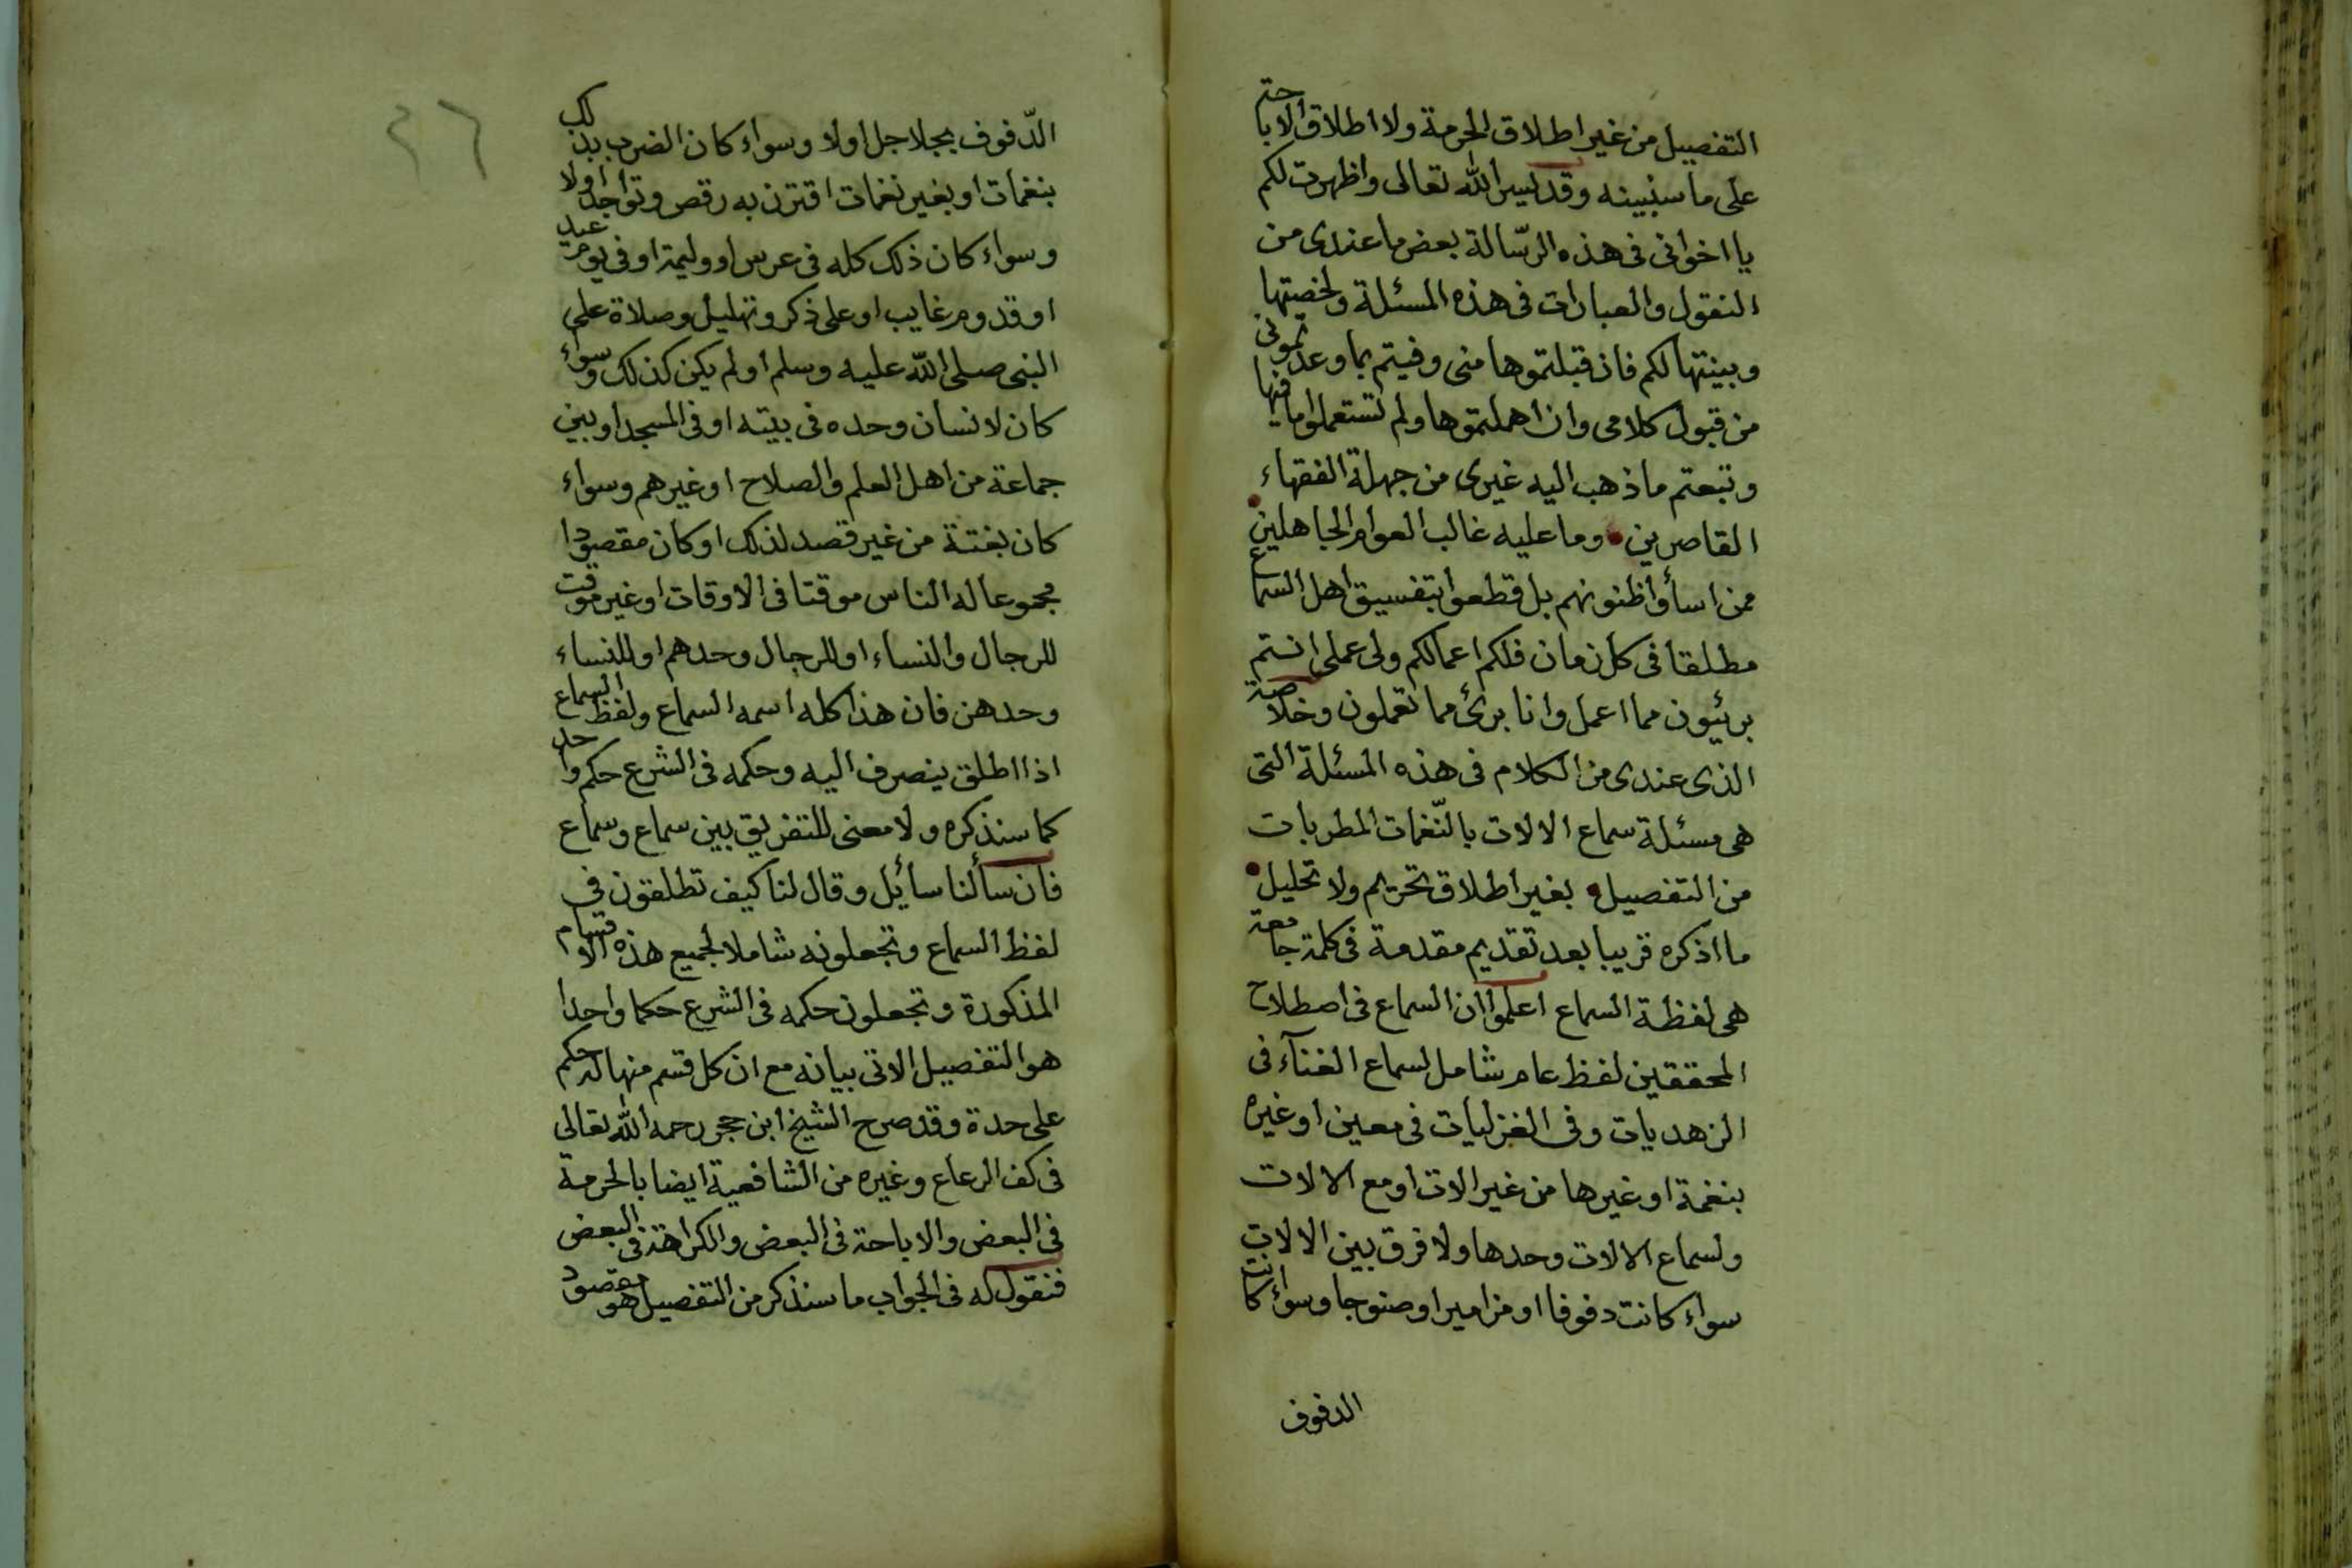 التفصيل من غير اطلاق الحرمة ولا اطلاق الاباحة
على ما سنبينه وقد يسر الله تعالى واظهرت لكم
يا اخوانى فى هذه الرسّالة بعض ما عندى من
النقول والعبارات فى هذه المسئلة ولخصتها
وبينتها لكم فان قبلتموها منى وفيتم بما وعدتمونى
من قبول كلامى وان اهملتموها ولم تستعملوا ما فيها
وتبعتم ما ذهب اليه غيرى من جهلة الفقهاء
القاصرين وما عليه غالب العوام الجاهلين
ممن اساؤا ظنونهم بل قطعوا بتفسيق اهل السماع
مطلقا فى كل زمان فلكم اعمالكم ولى عملى انتم
بريئون مما اعمل وانا برئ مما تعملون وخلاصة
الذى عندى من الكلام فى هذه المسئلة التى
هى مسئلة سماع الالات بالنّغمات المطربات
من التفصيل بغير اطلاق تحريم ولا تحليل
ما اذكره قريبا بعد تقديم مقدمة فى كلمة جامعة
هى لفظة السماع اعلموا ان السماع فى اصطلاح
المحققين لفظ عام شامل لسماع الغنآء فى
الزهديات وفى الغزليات فى معين او غيره
بنغمة او غيرها من غير الات او مع الالات
ولسماع الالات وحدها ولا فرق بين الالات
سواء كانت دفوفا او مزاميرا وصنوجا وسواء كانت
الدفوف
٢٦
الدّفوف بجلاجل اولا وسواء كان الضرب بذلك
بنغمات او بغير نغمات اقترن به رقص وتواجد اولا
وسواء كان ذلك كله فى عرس او وليمة او فى يوم عيد
او قدوم غايب او على ذكر وتهليل وصلاة على
النبى صلى الله عليه وسلم او لم يكن كذلك وسواء
كان لانسان وحده فى بيته او فى المسجد او بين
جماعة من اهل العلم والصلاح او غيرهم وسواء
كان بغتة من غير قصد لذلك او كان مقصودا
مجموعا له الناس موقتا فى الاوقات او غير موقت
للرجال والنساء او للرجال وحدهم او للنساء
وحدهن فان هذا كله اسمه السماع ولفظ السماع
اذا اطلق ينصرف اليه وحكمه فى الشرع حكم واحد
كما سنذكره ولا معنى للتفريق بين سماع وسماع
فان سألنا سائل وقال لنا كيف تطلقون فى
لفظ السماع وتجعلونه شاملا لجميع هذه الاقسام
المذكورة وتجعلون حكمه فى الشرع حكما واحدا
هو التفصيل الاتى بيانه مع ان كل قسم منها له حكم
على حدة وقد صرح الشيخ ابن حجر رحمه الله تعالى
فى كف الرعاع وغيره من الشافعية ايضا بالحرمة
فى البعض والاباحة فى البعض والكراهة فى البعض
فنقول له فى الجواب ما سنذكر من التفصيل هو مقصود